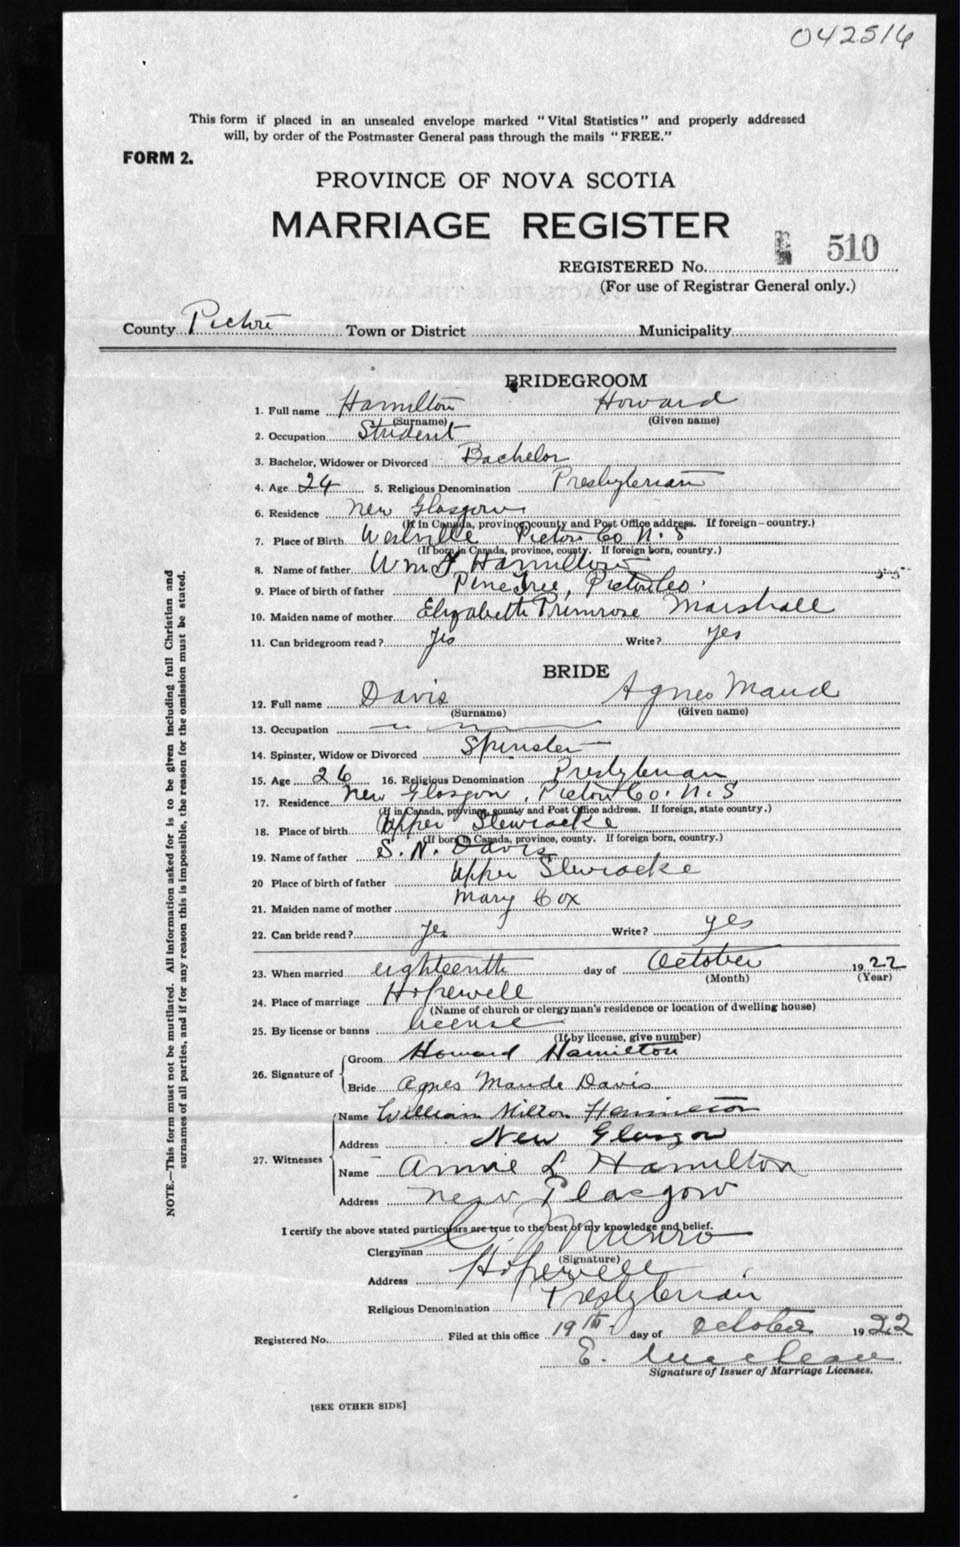 042516
This form if placed in an unsealed envelope marked "Vital Statistics" and properly addressed
will, by order of the Postmaster General pass through the mails "FREE."
FORM 2.
PROVINCE OF NOVA SCOTIA
MARRIAGE REGISTER
REGISTERED No. 510
(For use of Registrar General only.)
County Pictou Town or District Municipality
BRIDEGROOM
1. Full name Hamilton Howard
(Surname) (Given name)
2. Occupation Student
3. Bachelor, Widower or Divorced Bachelor
4. Age 24 5. Religious Denomination Presbyterian
6. Residence New Glasgow
(If in Canada, province, county and Post Office address. If foreign—country.)
7. Place of Birth Westville Pictou Co N. S
(If born in Canada, province, county. If foreign born, country.)
8. Name of father Wm Hamilton
9. Place of birth of father Pine Tree, Pictou Co.
10. Maiden name of mother Elizabeth Primrose Marshall
11. Can bridegroom read? yes Write? yes
BRIDE
12. Full name Davis Agnes Maud
(Surname) (Given name)
13. Occupation
14. Spinster, Widow or Divorced Spinster
15. Age 26 16. Religious Denomination Presbyterian
17. Residence New Glasgow, Pictou Co. N. S
(If in Canada, province, county and Post Office address. If foreign, state country.)
18. Place of birth Upper Stewiacke
(If born in Canada, province, county. If foreign born, country.)
19. Name of father S. N. Davis
20 Place of birth of father Upper Stewiacke
21. Maiden name of mother Mary Cox
22. Can bride read? yes Write? yes
23. When married eighteenth day of October 1922
(Month) (Year)
24. Place of marriage Hopewell
(Name of church or clergyman's residence or location of dwelling house)
25. By license or banns license
(If by license, give number)
26. Signature of Groom Howard Hamilton
Bride Agnes Maude Davis
27. Witnesses Name William Milton Hamilton
Address New Glasgow
Name Annie L Hamilton
Address New Glasgow
I certify the above stated particulars are true to the best of my knowledge and belief.
Clergyman Munro
(Signature)
Address Hopewell
Religious Denomination Presbyterian
Registered No. Filed at this office 19th day of October 1922
E. MacLean
Signature of Issuer of Marriage Licenses.
[SEE OTHER SIDE]
NOTE.—This form must not be mutilated. All information asked for is to be given including full Christian and
surnames of all parties, and if for any reason this is impossible, the reason for the omission must be stated.